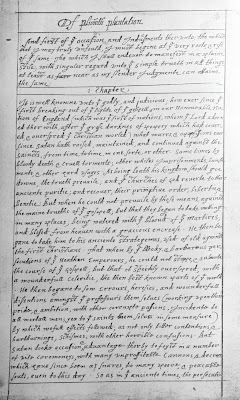 Of plimoth plantation
And first of y^e occasion, and Indusments ther unto; the which
that I may truly unfould, I must begine at y^e very roote & rise
of y^e same. The which I shall endevor to manefest in a plaine
stile; with singuler regard unto y^e simple trueth in all things,
at least as near as my slender Judgmente can attaine
the same.
1. Chapter
It is well knowne unto y^e godly, and judicious, how ever since y^e
first breaking out of y^e lighte of y^e gospell, in our Honourable Na-
tion of England (which was y^e first of nations, whom y^e Lord adorn-
ed ther with, affter y^e grosse darknes of popery which had cover-
ed, & overspred y^e christian world) what warrs, & opposissions ever
since satan hath raised, maintained, and continued against the
saincts, from time, to time, in one sorte, or other. Some times by
bloody death & cruell torments; other whiles Imprisonments, banish-
ments, & other hard usages; As being loath his kingdom should goe
downe, the trueth prevaile; and y^e churches of god reverte to their
anciente puritie; and recover, their primative order, libertie, &
bewtie. But when he could not prevaile by these means, against
the maine trueths of y^e gospell; but that they began to take rootting
in many places; being watered with y^e blooud of y^e martires,
and blessed from heaven with a gracious encrease. He then be-
gane to take him to his anciente strategemes, used of old against
the first christians. That when by y^e bloody, & barbarous per-
secutions of y^e Heathen Emperours, he could not stoppe, & subverte
the course of y^e gospell; but that it speedily overspred, with
a wounderfull celeritie, the then best known parts of y^e world;
He then begane to sow errours, heresies, and wounderfull
disentions amongst y^e profesours them selves (working upon their
pride, & ambition, with other corrupte passions, incidente to
all mortall men; yea to y^e saints them selves in some measure)
By which wofull effects followed; as not only bitter contentions, &
hartburnings, schismes, with other horrible confusions. But
satan tooke occasion & advantage therby to foyst in a number
of vile ceremoneys, with many unprofitable Cannons, & decrees
which have since been as snares, to many poore, & peaceable
souls, even to this day. So as in y^e anciente times, the persecutio